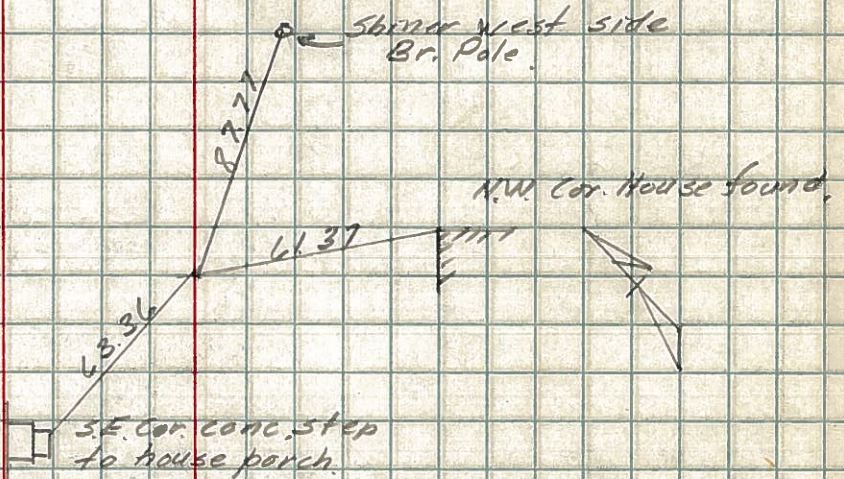 Shiner west side
Br. Pole.
87.77
N.W. Cor. House found.
61.37
63.36
S.E. Cor. conc. step
to house porch.